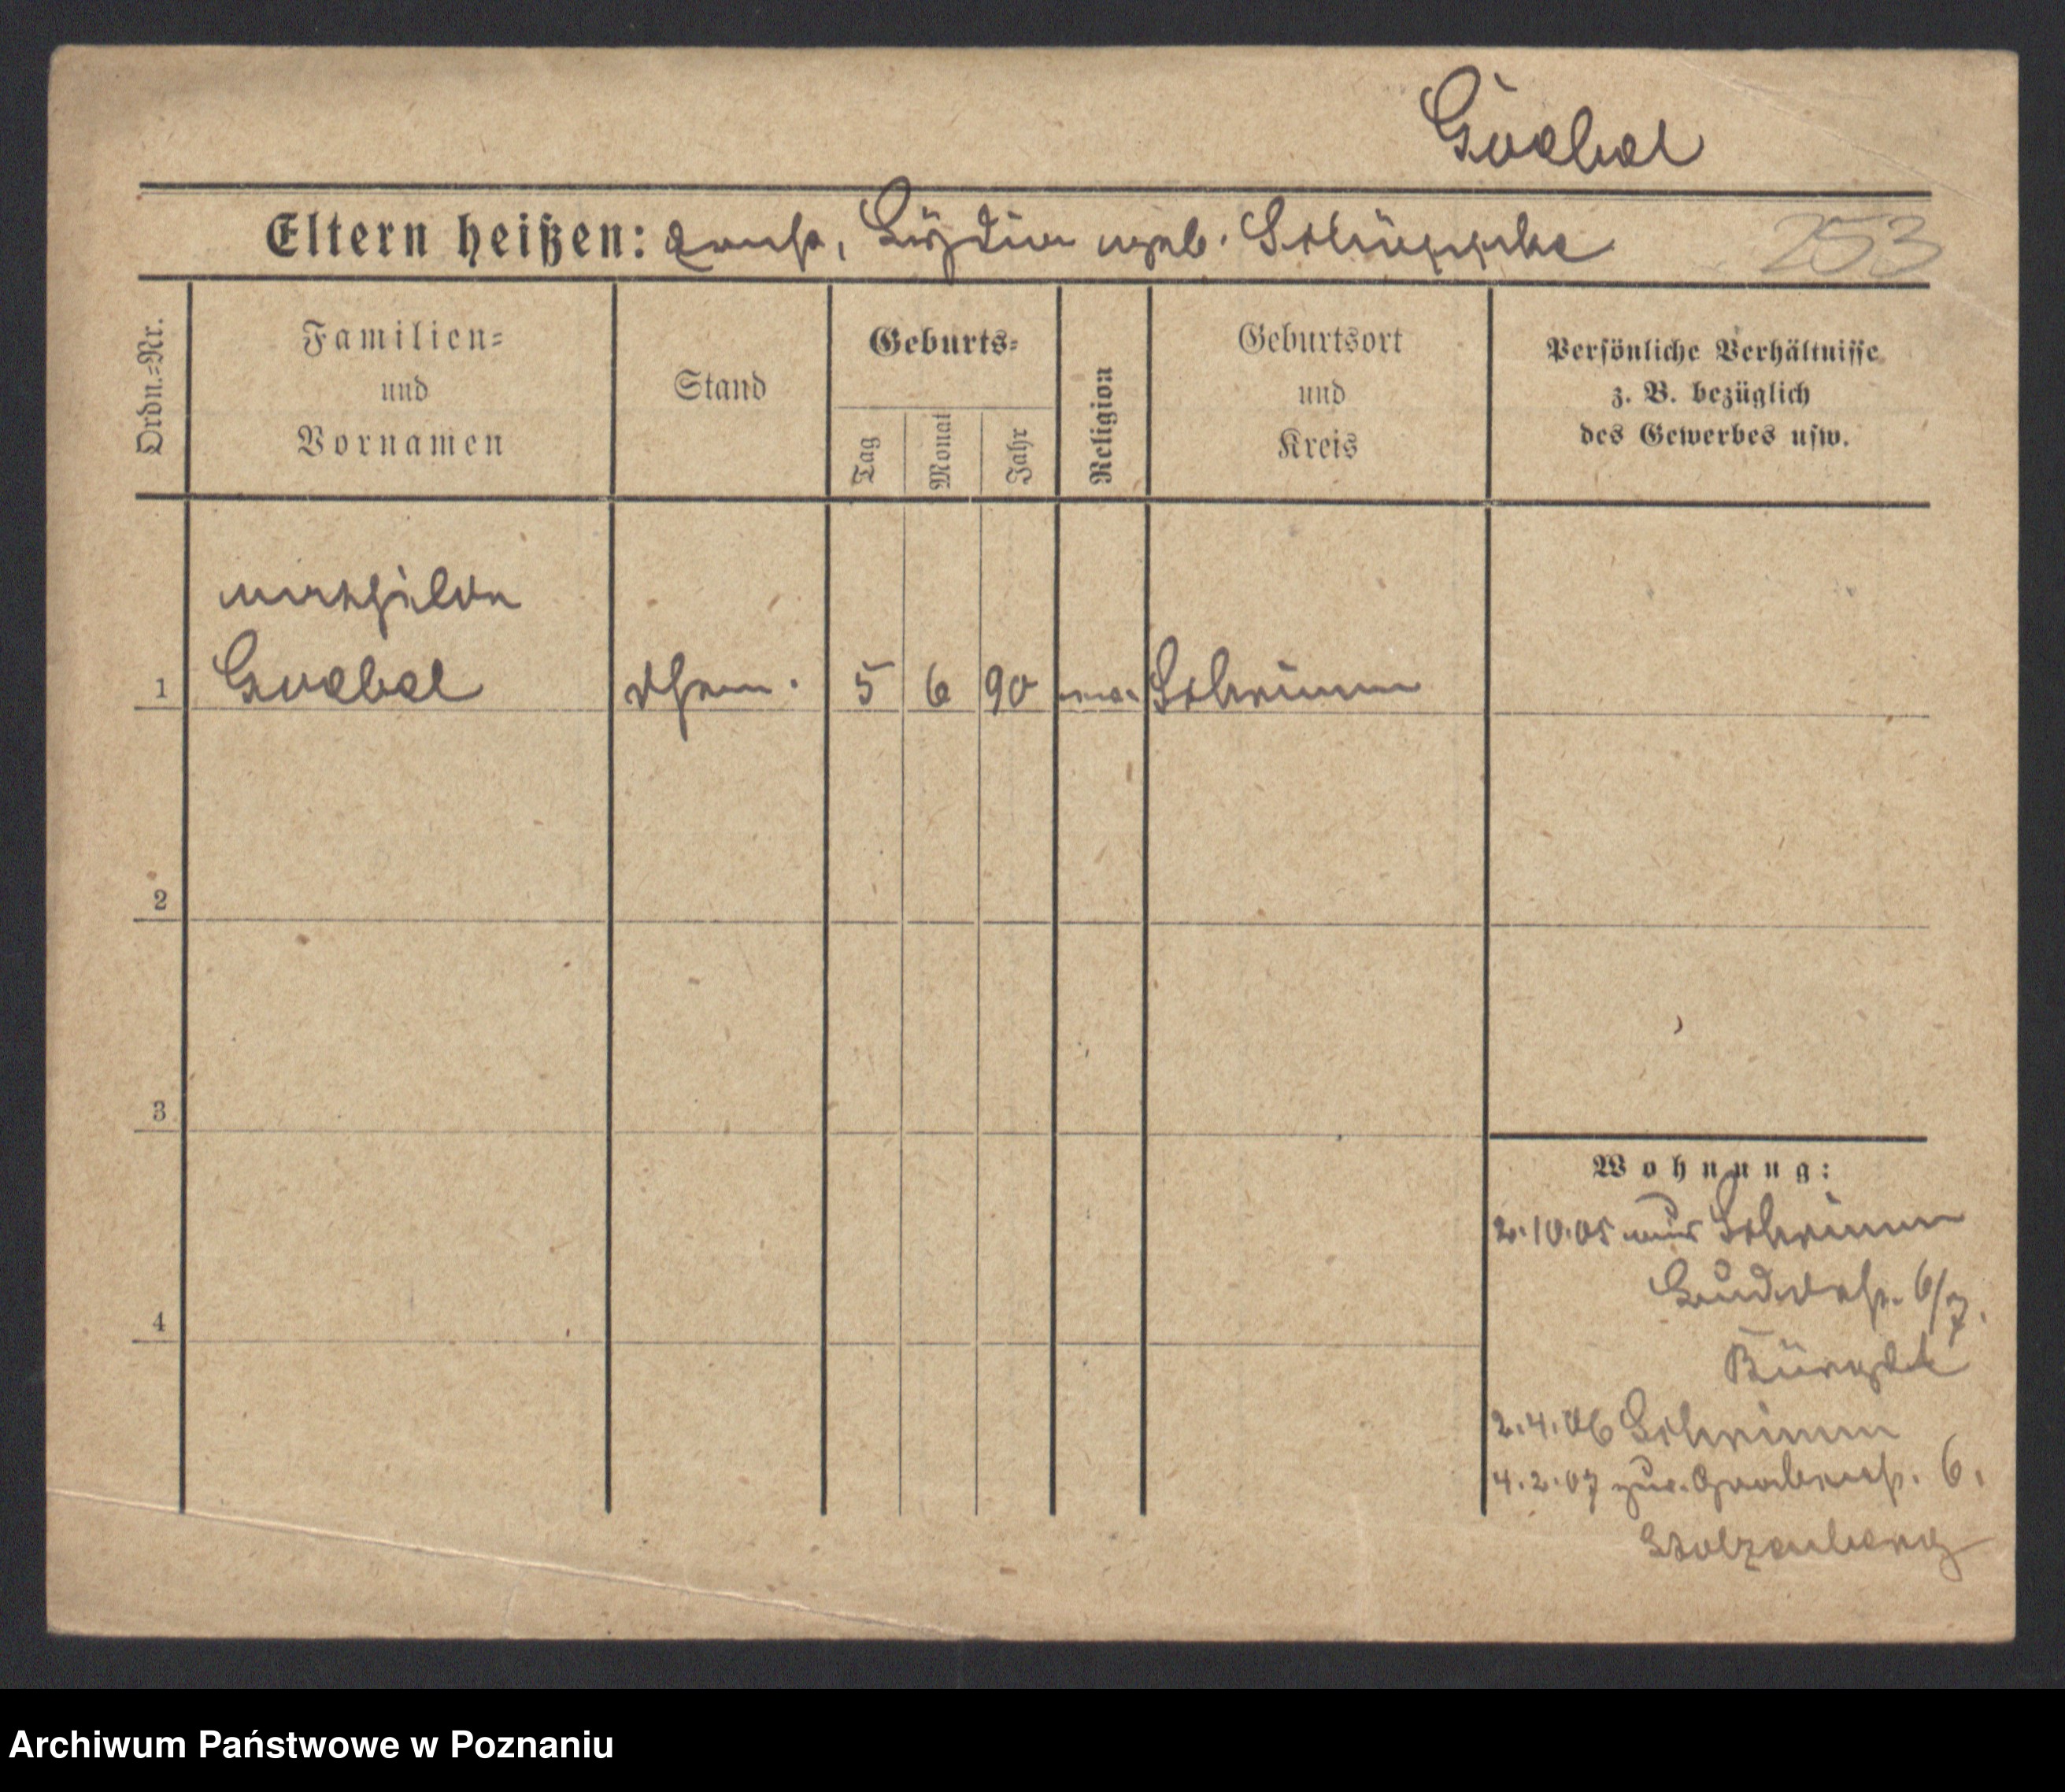 Goebel
Eltern heißen: Ernst, Lydia geb. Schöppke
253
Ordn.-Nr.
Familien-
und
Vornamen
Stand
Geburts-
Tag
Monat
Jahr
Religion
Geburtsort
und
Kreis
Persönliche Verhältnisse
z. B. bezüglich
des Gewerbes usw.
Mathilde
1 Goebel 5 6 90 Schrimm
2
3
4
Wohnung:
2.10.05 aus Schrimm
6/7.
2.4.06 Schrimm
4.2.07 zur. Grabenstr. 6.
Stolzenberg
Archiwum Państwowe w Poznaniu